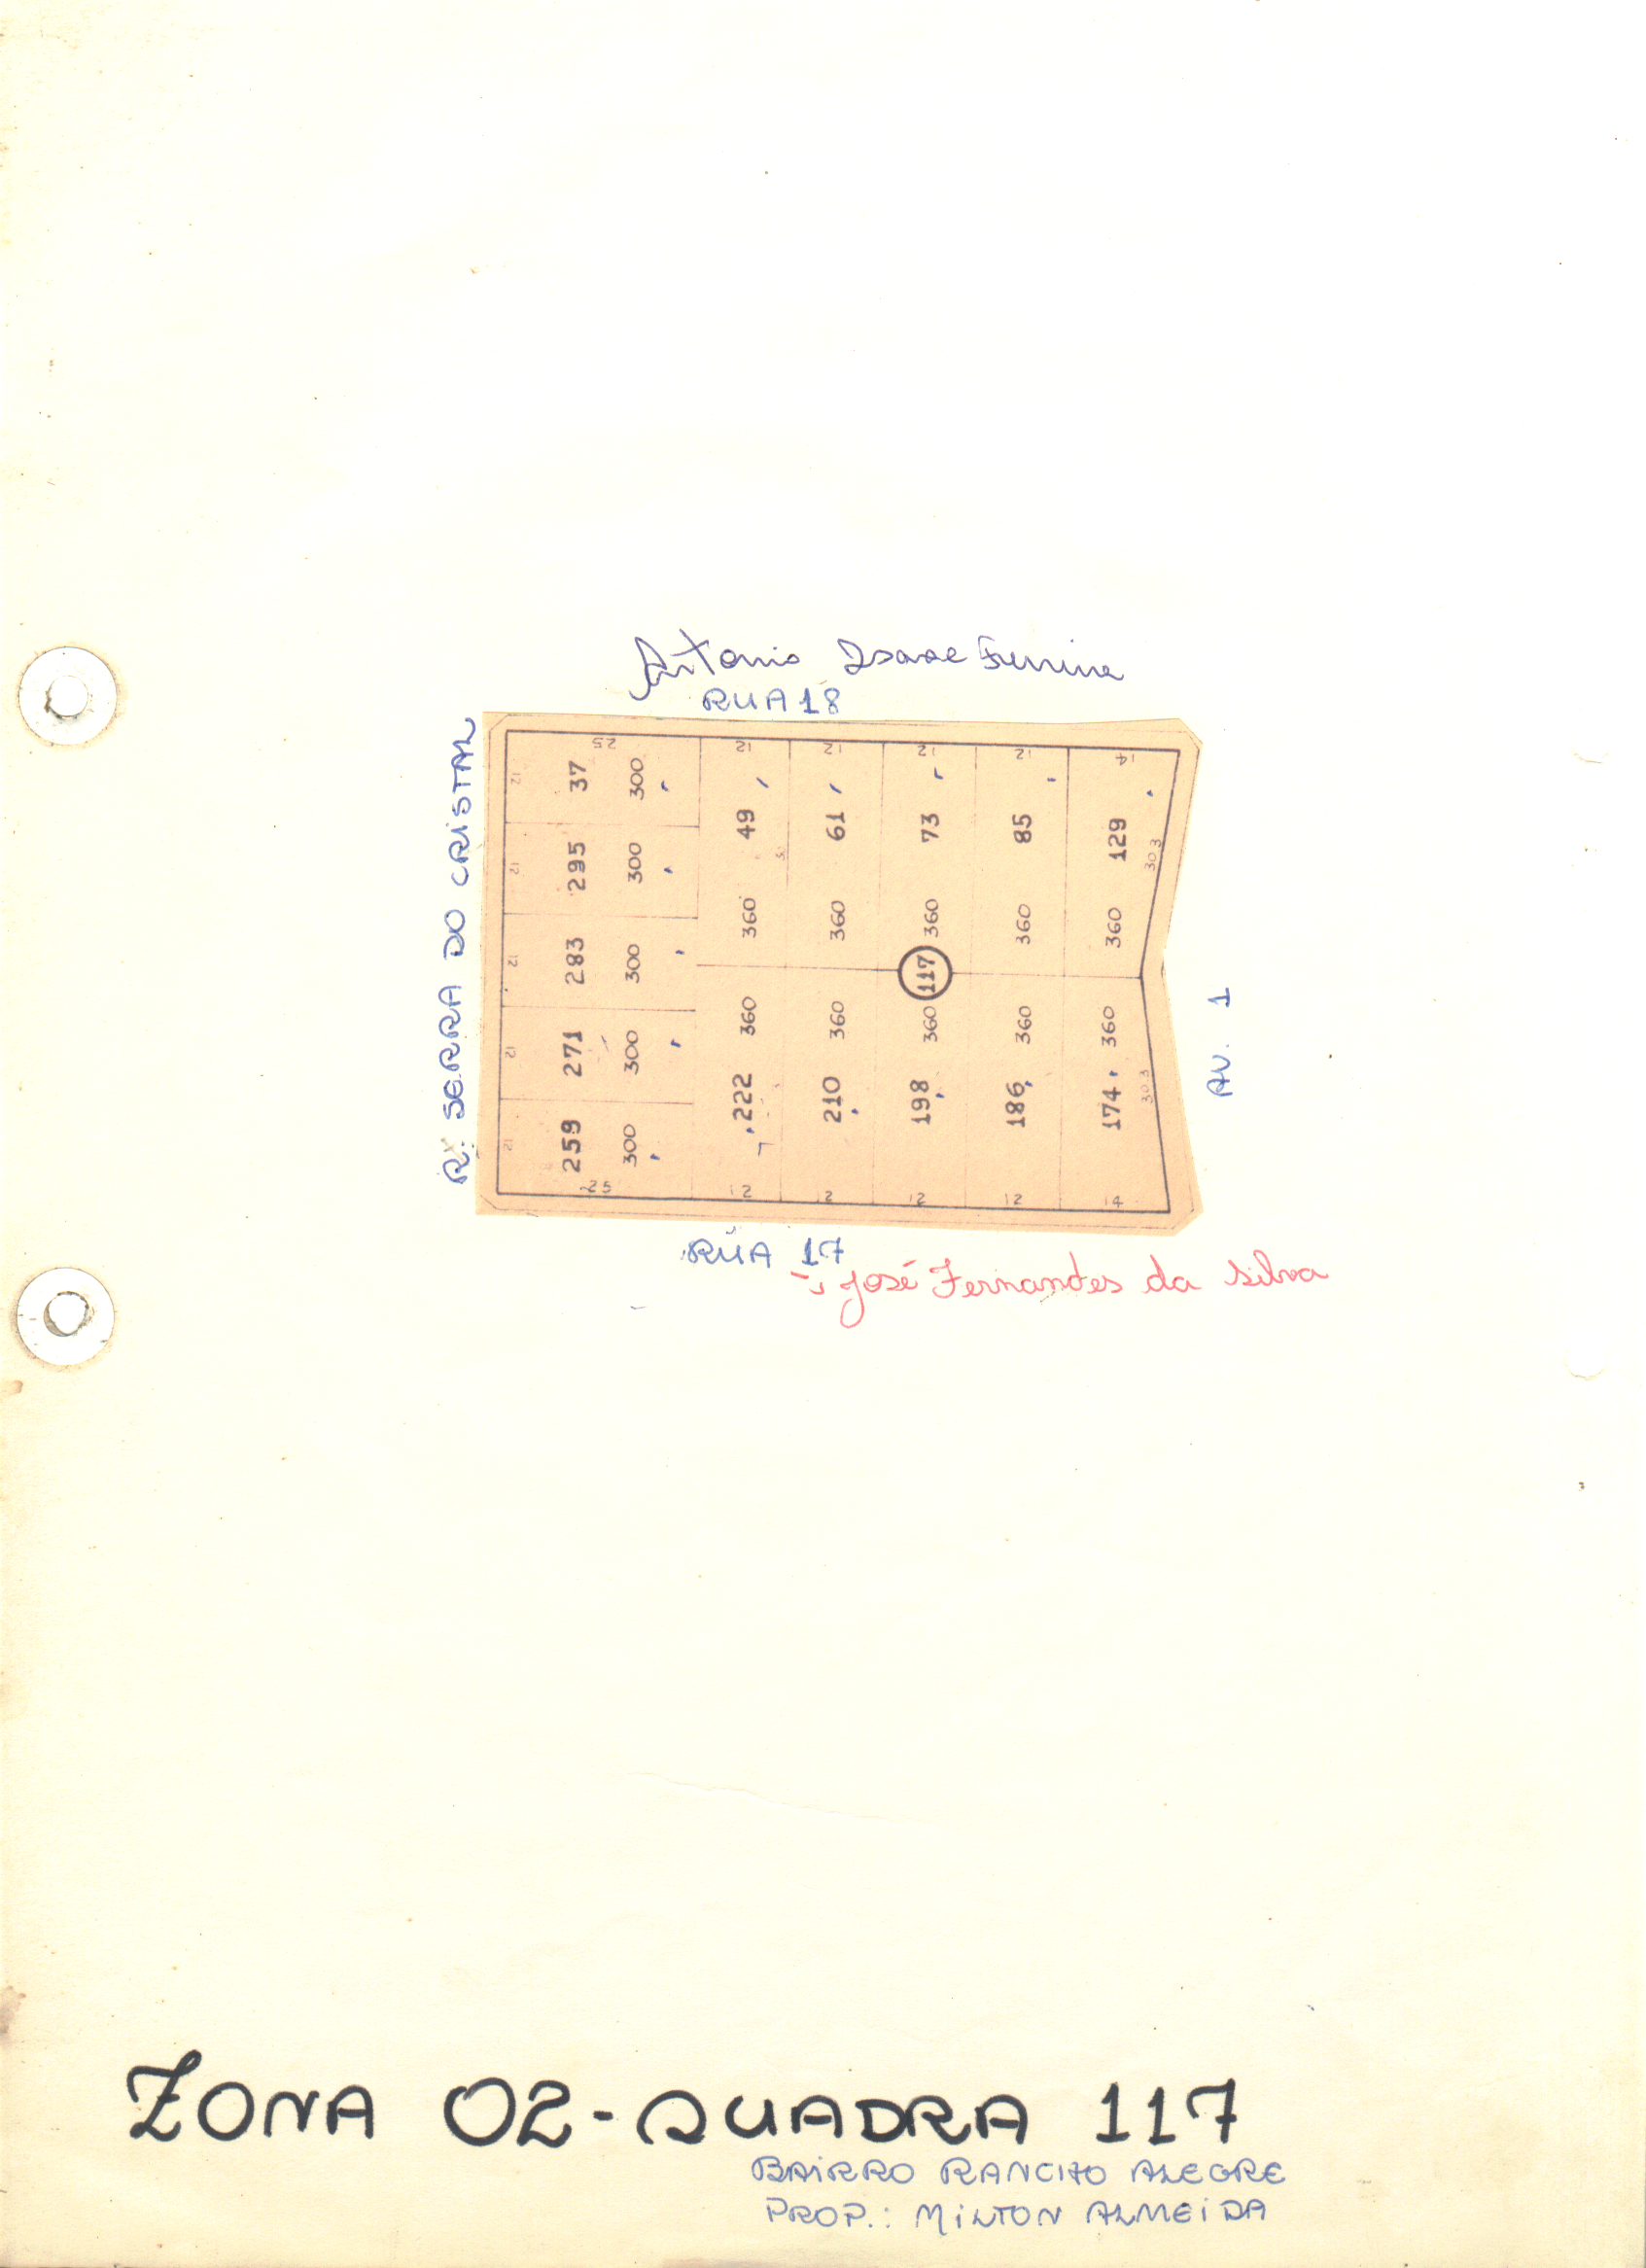 Antonio Isaac Ferreira
RUA 18
R: SERRA DO CRISTAL
25 12 12 12 12 14
12 12 12 12 12
37 295 283 271 259
300 300 300 300 300
49 61 73 85 129
30 30 3
360 360 360 360 360
117
360 360 360 360 360
222 210 198 186 174
30 3
25 12 12 12 12 14
AV. 1
RUA 17
José Fernandes da Silva
ZONA 02-QUADRA 117
BAIRRO RANCHO ALEGRE
PROP.: MILTON ALMEIDA